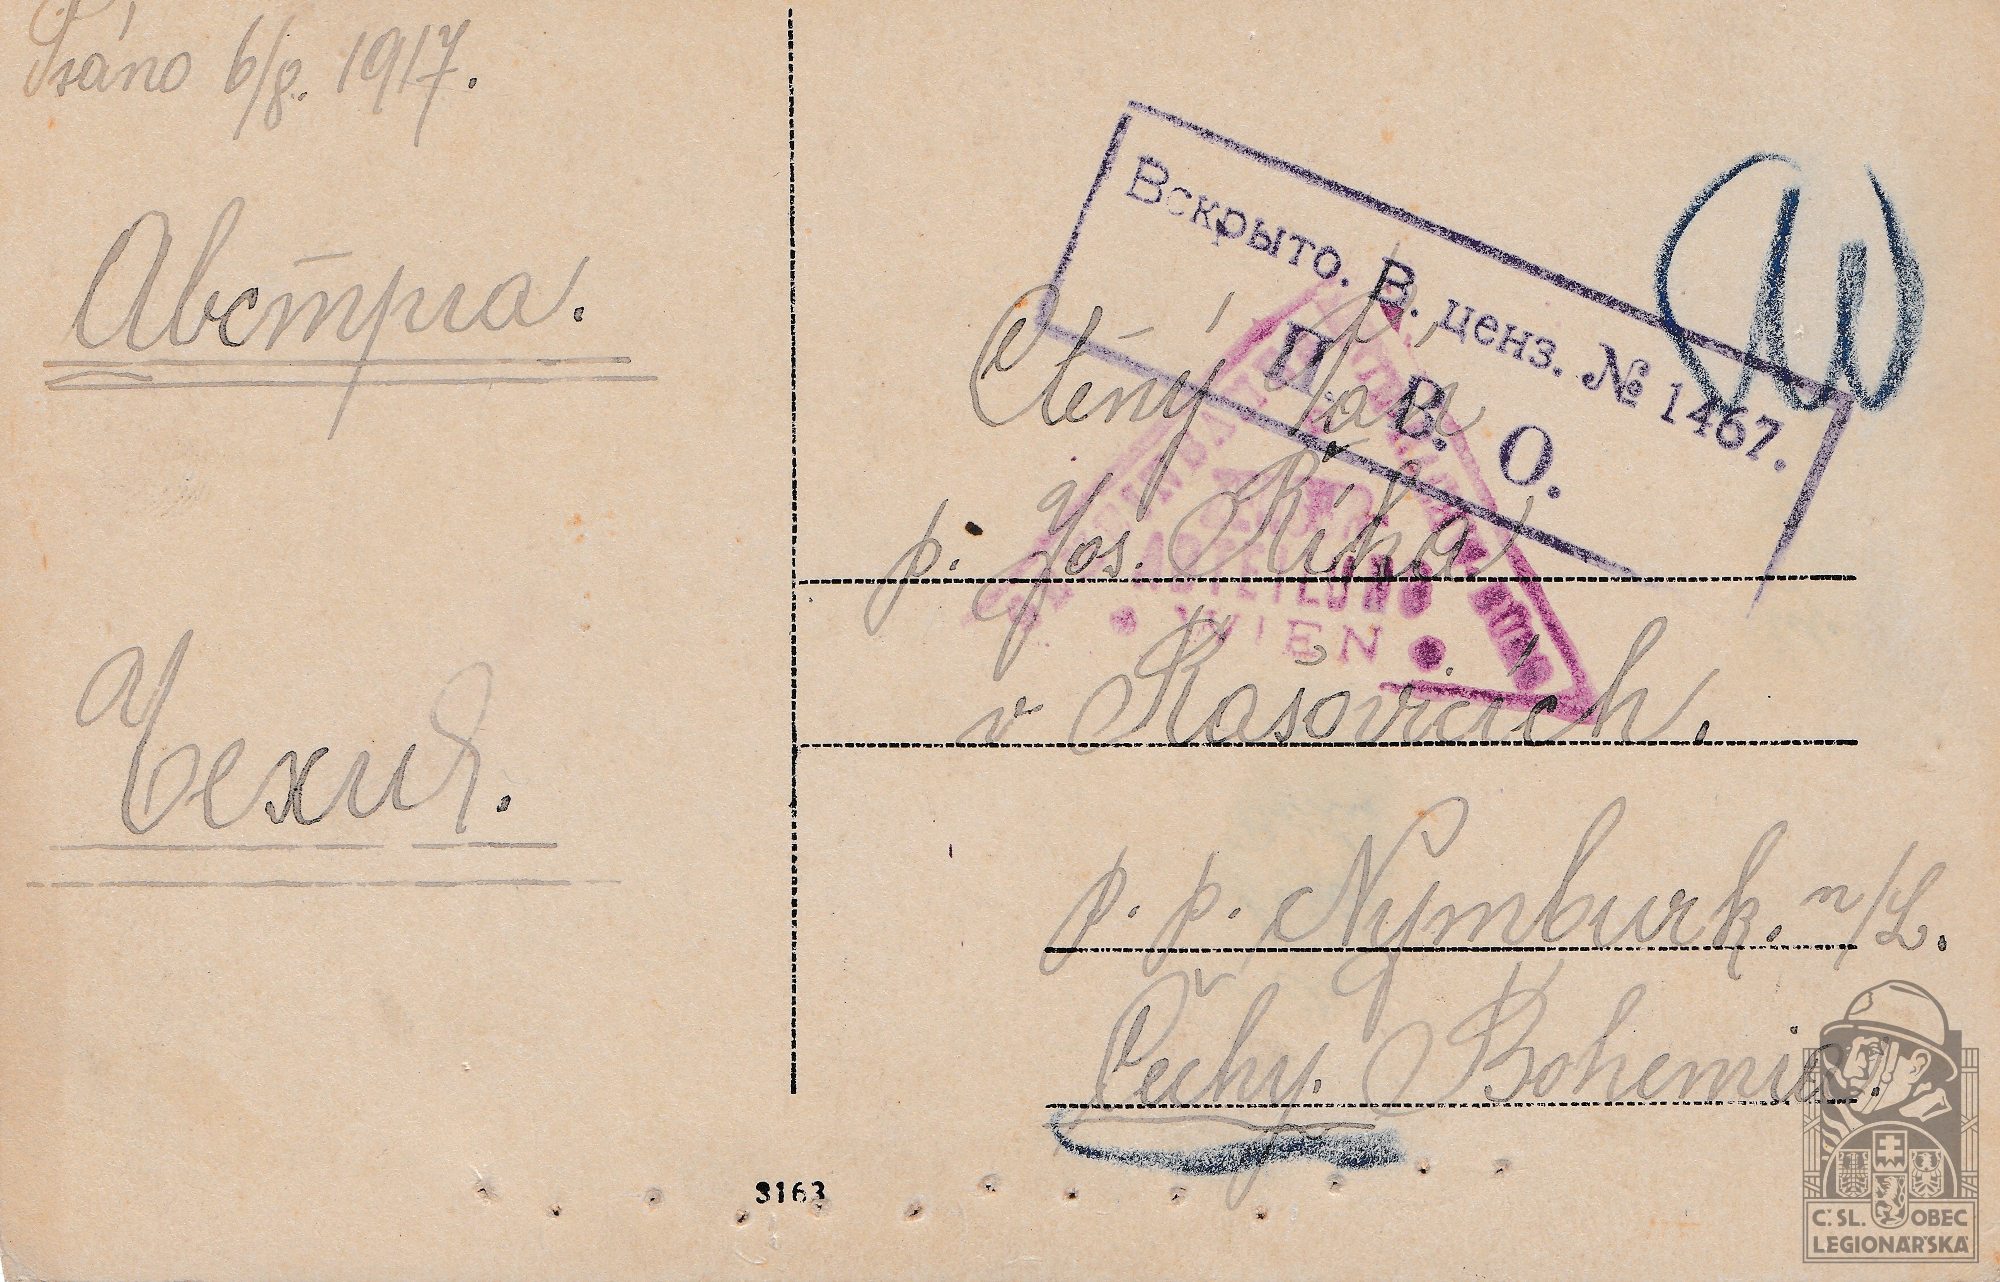 Psáno 6/8. 1917.
Австрıа.
Чехия.
Вскрыто. В. ценз. № 1467.
П. В. О.
Ctěný Pán
p. Jos. Říha
v Rašovicích.
p. p. Nymburk. n/L.
Čechy. Bohemia.
ABTEILUNG
WIEN
3163
Č. SL. OBEC
LEGIONÁŘSKÁ